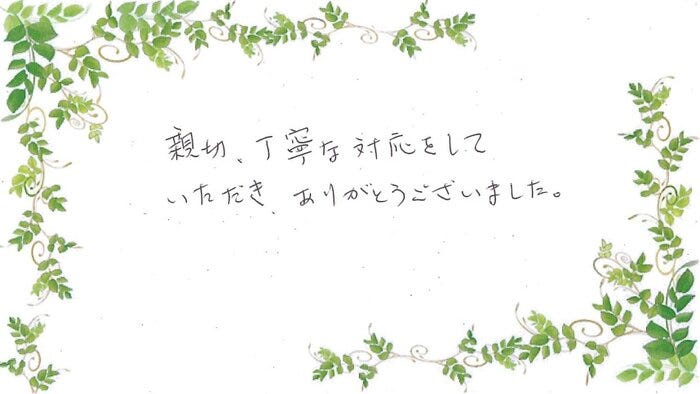 親切、丁寧な対応をして
いただき、ありがとうございました。